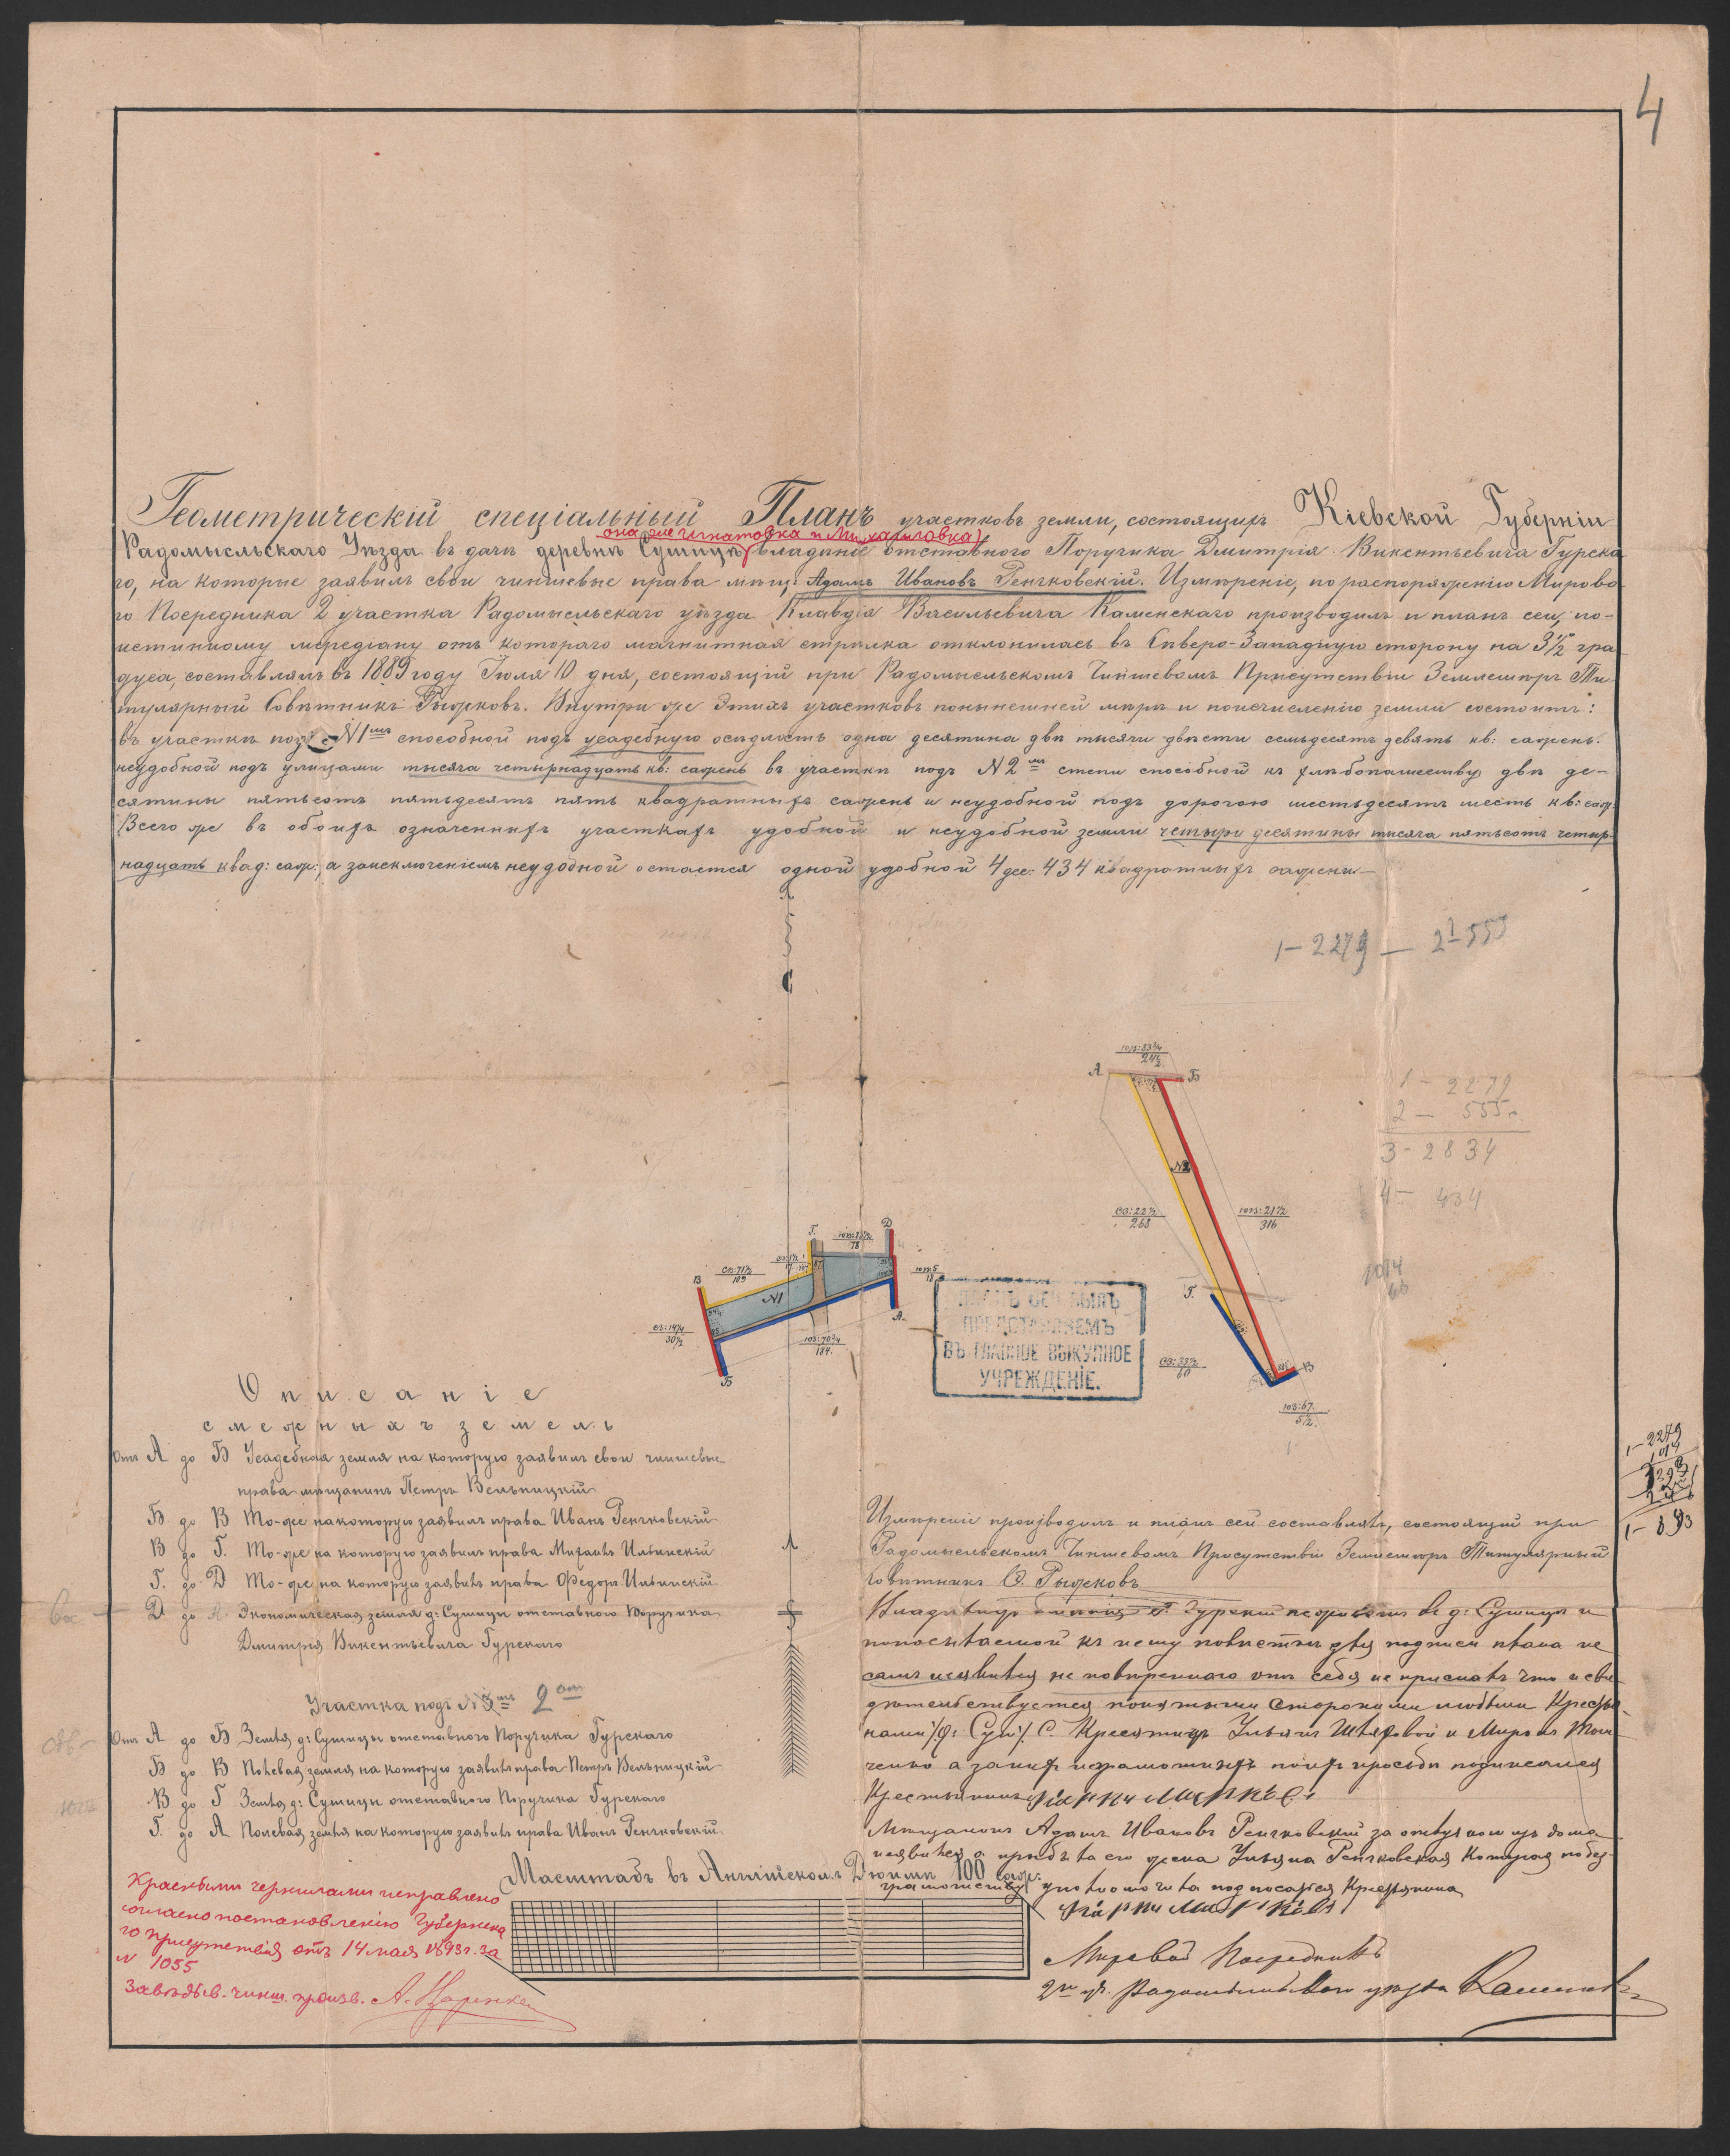 4
Геометрическій спеціальный Планъ участковъ земли, состоящихъ Кіевской Губерніи
она же Игнатовка и Михайловка)
Радомысльскаго Уѣзда въ дачѣ деревнѣ Сушицѣ владѣніе отставного Поручика Дмитрія Викентьевича Гурска
го, на которые заявилъ свои чиншевые права мѣщ: Адамъ Ивановъ Генчковскій. Измѣреніе, по распоряженію Мирова
го Посредника 2 участка Радомысльскаго уѣзда Клавдія Васильевича Каменскаго производилъ и планъ сей, по
истинному мередіану отъ котораго магнитная стрѣлка отклонилась въ Сѣверо-Западную сторону на 3 1/2 гра
дуса, составлялъ въ 1889 году Іюля 10 дня, состоящій при Радомысльскомъ Чиншевомъ Присутствіи Землемѣръ Ти
тулярный Совѣтникъ Рыжковъ. Внутри же этихъ участковъ понынешней мѣрѣ и поисчисленію земли состоитъ:
въ участкѣ подъ N1мъ способной подъ усадебную осѣдлость одна десятина двѣ тысячи двѣсти семьдесятъ девять кв: сажень.
неудобной подъ улицами тысяча четырнадцать кв: сажень въ участкѣ подъ N2мъ степи способной къ хлѣбопашеству двѣ де-
сятины пятьсотъ пятьдесятъ пять квадратныхъ сажень и неудобной подъ дорогою шестьдесятъ шесть кв: саж:
Всего же въ обоихъ означенныхъ участкахъ удобной и неудобной земли четыри десятины тысяча пятьсотъ четыр
надцать квад: саж:, а заисключеніемъ неудобной остается одной удобной 4 дес: 434 квадратныхъ сажени
1-2279 — 2-555
А
юз:83 3/4
24 1/2
Б
1 - 2279
2 - 555
3 - 2834
4 - 434
N2
СЗ:22 1/2
268
юв:21 1/2
316
Г.
Д
78
СВ:71 1/2
109
В
N1
юв:5
18
А.
Г.
1014
66
СЗ:14 1/4
30 1/2
юз:70 3/4
184.
Б
ПЛАНЪ СЕЙ БЫЛЪ
ПРЕДСТАВЛЯЕМЪ
ВЪ ГЛАВНОЕ ВЫКУПНОЕ
УЧРЕЖДЕНІЕ.
60
В
юз:67
5 1/2
Описаніе
смежныхъ земель
Отъ А до Б Усадебная земля на которую заявилъ свои чиншевые
права мѣщанинъ Петръ Вельницкій
Б до В То-же на которую заявилъ права Иванъ Генчковскій
В до Г. То-же на которую заявилъ права Михаилъ Ильинскій
Г. до Д То-же на которую заявилъ права Федоръ Ильинскій
Д до А Экономическая земля д: Сушицы отставного Поручика
Дмитрія Викентьевича Гурскаго
Участка подъ N 2
Отъ А до Б Земля д: Сушицы отставного Поручика Гурскаго
Б до В Полевая земля на которую заявилъ права Петръ Вельницкій
В до Г Земля д: Сушицы отставного Поручика Гурскаго
Г. до А Полевая земля на которую заявилъ права Иванъ Генчковскій
1-2279
1-893
Измѣреніе производилъ и планъ сей составлялъ, состоящій при
Радомысльскомъ Чиншевомъ Присутствіи Землемѣръ Титулярный
Совѣтникъ Рыжковъ
Владѣлецъ имѣнія Гурскій не проживаетъ въ д: Сушицѣ и
попосылаемой къ нему повѣсткѣ для подписи плана не
самъ неявился не повѣреннаго отъ себя не прислалъ что и сви
дѣтельствуется понятыми сторонними людьми Крестья
нами д: Суш С. Кресятичъ Ульяномъ и Мирономъ
а за нихъ неграмотныхъ поихъ просьбѣ подписался
Крестьянинъ
Мѣщанинъ Адамъ Ивановъ Генчковскій за отлучкою изъ дома
неявился а прибыла его жена Ульяна Генчковская Которая побез-
грамотству уполномочила подписатся Крестьянина
Мировой Посредникъ
2го уч. Радомысльскаго уѣзда Каменскій
Масштабъ въ Англійскомъ Дюймѣ 100 саж:
Красными чернилами исправлено
согласно постановленію Губернска
го присутствія отъ 14 мая 1893 г. за
N 1055
Завѣдыв. чинш. произв.